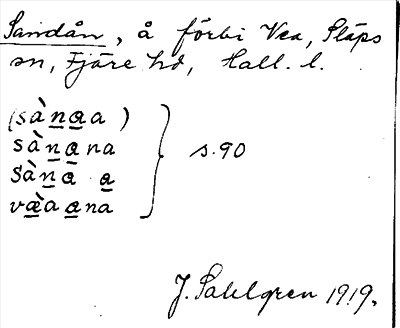 Sandån, å förbi Vea, Släps
sn, Fjäre hd, Hall. l.
(sànaa)
sànana
s. 90
sàna a
væ̀aana
J. Sahlgren 1919.